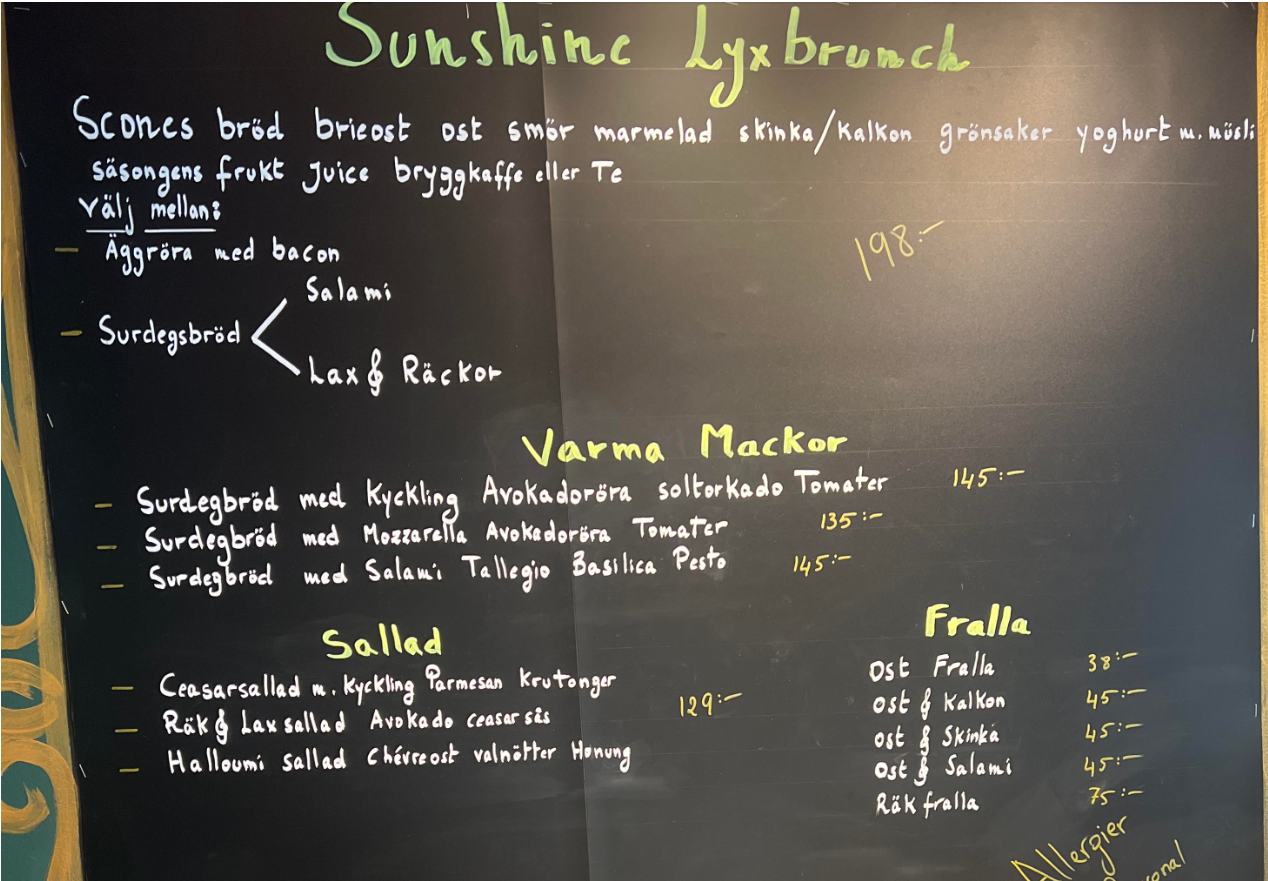 Sunshine Lyxbrunch
Scones bröd brieost ost smör marmelad skinka/kalkon grönsaker yoghurt m. müsli
säsongens frukt juice bryggkaffe eller Te
välj mellan:
– Äggröra med bacon
198:-
Salami
– Surdegsbröd
Lax & Räckor
Varma Mackor
– Surdegbröd med Kyckling Avokadoröra soltorkado Tomater 145:-
– Surdegbröd med Mozzarella Avokadoröra Tomater 135:-
– Surdegbröd med Salami Tallegio Basilica Pesto 145:-
Sallad
– Ceasarsallad m. Kyckling Parmesan Krutonger
– Räk & Lax sallad Avokado ceasar sås 129:-
– Halloumi sallad chévreost valnötter Honung
Fralla
Ost Fralla 38:-
ost & Kalkon 45:-
ost & Skinka 45:-
Ost & Salami 45:-
Räk fralla 75:-
Allergier